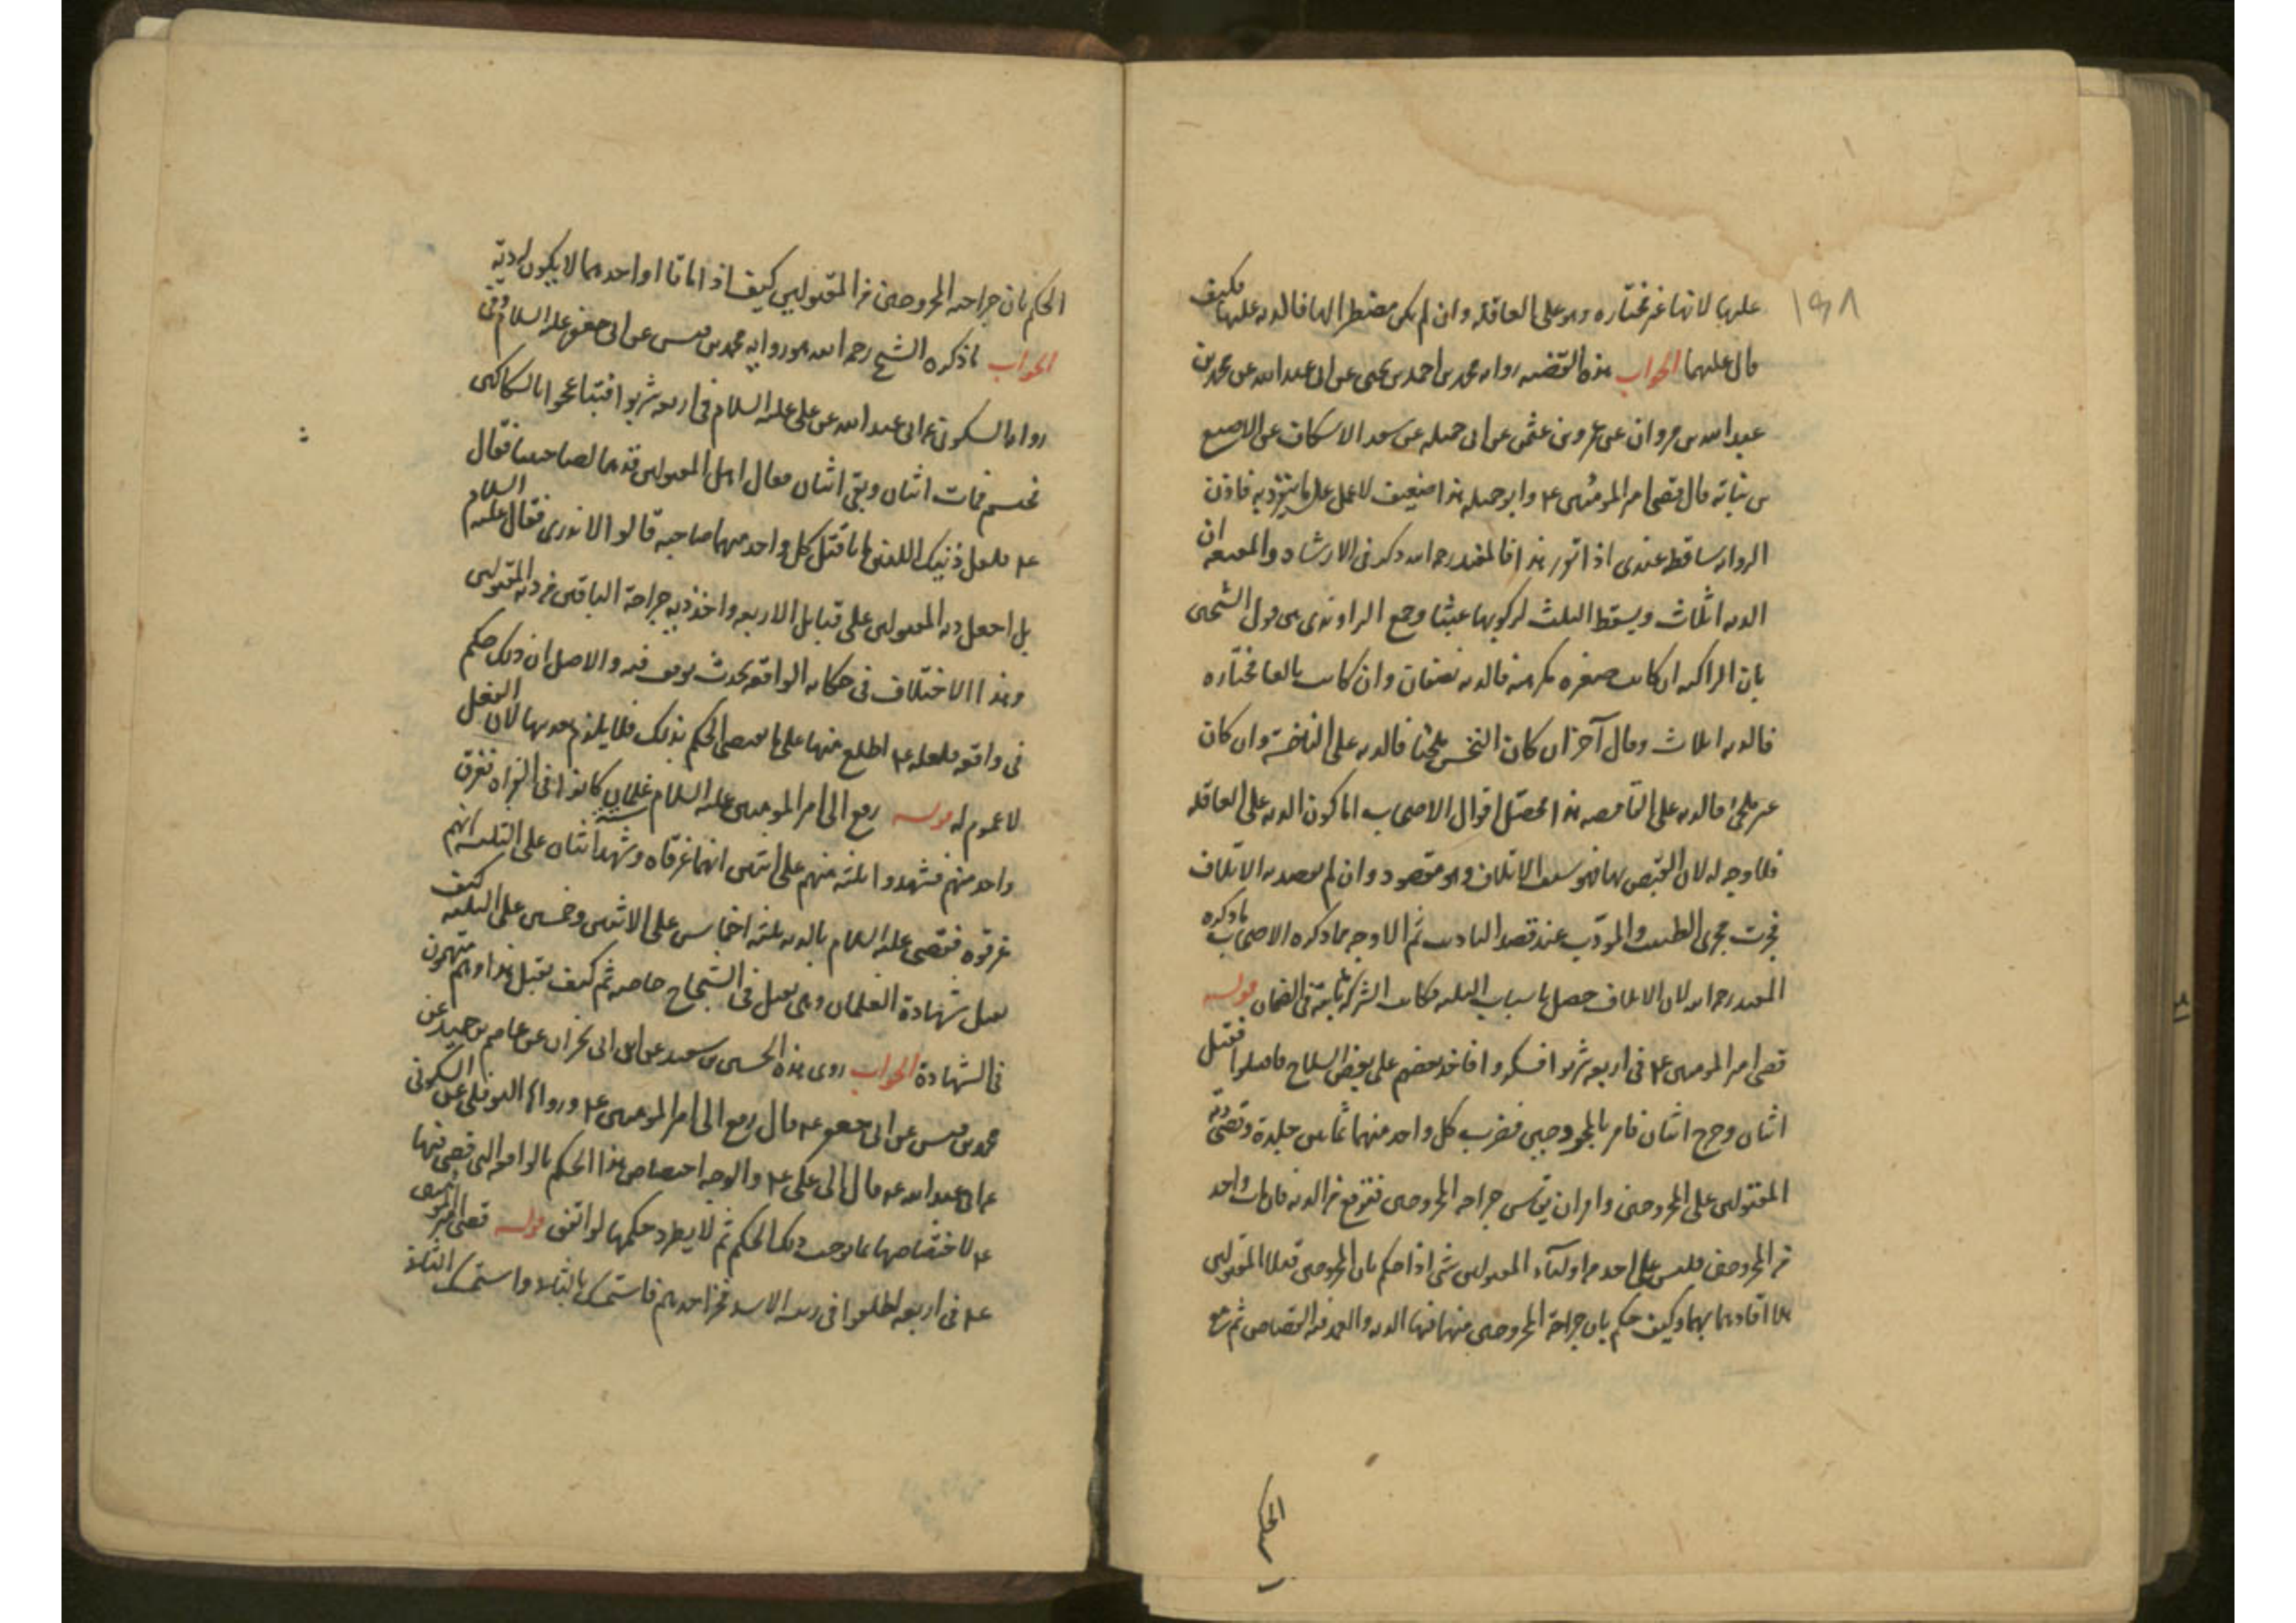 ١٩٨
عليها لانها غير مختاره وهو على العاقله وان لم يكن مضطرا اليها فالديه عليها فكيف
قال عليهما الجواب هذه القضيه رواه محمد بن احمد بن يحيى عن ابى عبد الله عن محمد بن
عبد الله بن مروان عن عمرو بن عثمن عن ابى جميله عن سعد الاسكاف عن الاصبع
بن نباته قال قضى امير المومنين ع وابو جميله هذا ضعيف لا عمل على ما ينفرد به فاذن
الروايه ساقطه عندى اذا تقرر هذا فالمفيد رحمه الله ذكر فى الارشاد والمقنعه ان
الديه اثلاث ويسقط الثلث لركوبها عبثا وجمع الراوندى بين قول الشيخين
بان الراكبه ان كانت صغيره مكرهه فالديه نصفان وان كانت بالغا مختاره
فالديه اثلاث وقال آخر ان كان النخس ملجئا فالديه على الناخسة وان كان
غير ملجئ فالديه على القامصه هذا محصل اقوال الاصحاب اما كون الديه على العاقله
فلا وجه له لان القمص بها فهو سبب الاتلاف وهو مقصود وان لم يقصد به الاتلاف
فجرت مجرى الطبيب والمودب عند قصد التاديب ثم الاوجه مما ذكره الاصحاب ما ذكره
المفيد رحمه الله لان الاتلاف حصل باسباب الثلثه فكانت الشركة ثابتة فى الضمان قوله
قضى امير المومنين ع فى اربعه شربوا فسكروا فاخذ بعضهم على بعض السلاح فاقتتلوا فقتل
اثنان وجرح اثنان فامر بالمجروحين فضرب كل واحد منهما ثمانين جلدة وقضى دية
المقتولين على المجروحين وامر ان يقاس جراحه المجروحين فترفع من الديه فان مات واحد
من المجروحين فليس على احد من اولياء المقتولين شى اذا حكم بان المجروحين قتلا المقتولين
هلا اقادهما بهما وكيف حكم بان جراحة المجروحين منهما فيها الديه والعمد فيه القصاص ثم مع
الحكم
الحكم بان جراحه المجروحين من المقتولين كيف اذا ماتا او احدهما لا يكون له دية
الجواب ما ذكره الشيخ رحمه الله هو رواية محمد بن قيس عن ابى جعفر عليه السلام وفى
رواية السكونى عن ابى عبد الله عن على عليه السلام فى اربعه شربوا فتباعجوا بالسكاكين
فمات اثنان وبقى اثنان فقال اهل المقتولين قدهما لصاحبينا فقال
ع فلعل ذينك اللذين ماتا قتل كل واحد منهما صاحبه قالوا لا ندرى فقال عليه السلام
بل اجعل دية المقتولين على قبايل الاربعه واخذ دية جراحة الباقين من دية المقتولين
وهذا الاختلاف فى حكايه الواقعه بحدث يوقف فيه والاصل ان ذلك حكم
فى واقعه فلعله ع اطلع منها على ما يقتضى الحكم بذلك فلا يلزم تعديها لان الفعل
لا عموم له قوله رفع الى امير المومنين عليه السلام ستة غلمان كانوا فى الفراه فغرق
واحد منهم فشهدوا ثلثه منهم على اثنين انهما غرقاه وشهد اثنان على الثلثه انهم
غرقوه فقضى عليه السلام بالديه ثلثه اخماس على الاثنين وخمسين على الثلثه كيف
تقبل شهادة الغلمان وهى تقبل فى الشجاج خاصه ثم كيف تقبل هذا وهم متهمون
فى الشهادة الجواب روى هذه الحسين بن سعيد عن ابن ابى نجران عن عاصم بن حميد عن
محمد بن قيس عن ابى جعفر ع قال رفع الى امير المومنين ع ورواها النوفلى عن السكونى
عن ابى عبد الله ع قال الى على ع والوجه اختصاص هذا الحكم بالواقعه التى قضى فيها
ع لاختصاصها بما يوجب ذلك الحكم ثم لا يطرد حكمها لو اتفق قوله قضى امير المومنين
ع فى اربعه اطلعوا فى زبيه الاسد فخر احدهم فاستمسك بالثانى واستمسك الثانى